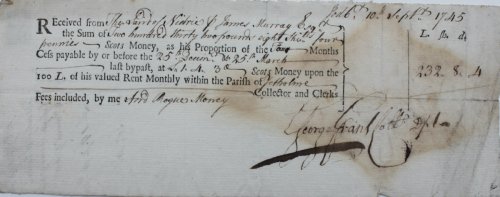 10th Septr. 1745
Received from The Lands of James Murray Esqr L. Sh. d.
the Sum of Two hundred thirty two pounds eight Shill: four
pennies Scots Money, as his Proportion of the Months
Cess payable by or before the 25th & 25th March
last bypast, at Scots Money upon the 232 8 4
100 L. of his valued Rent Monthly within the Parish of
Collector and Clerks
Fees included, by me And Rogue Money
George Grant